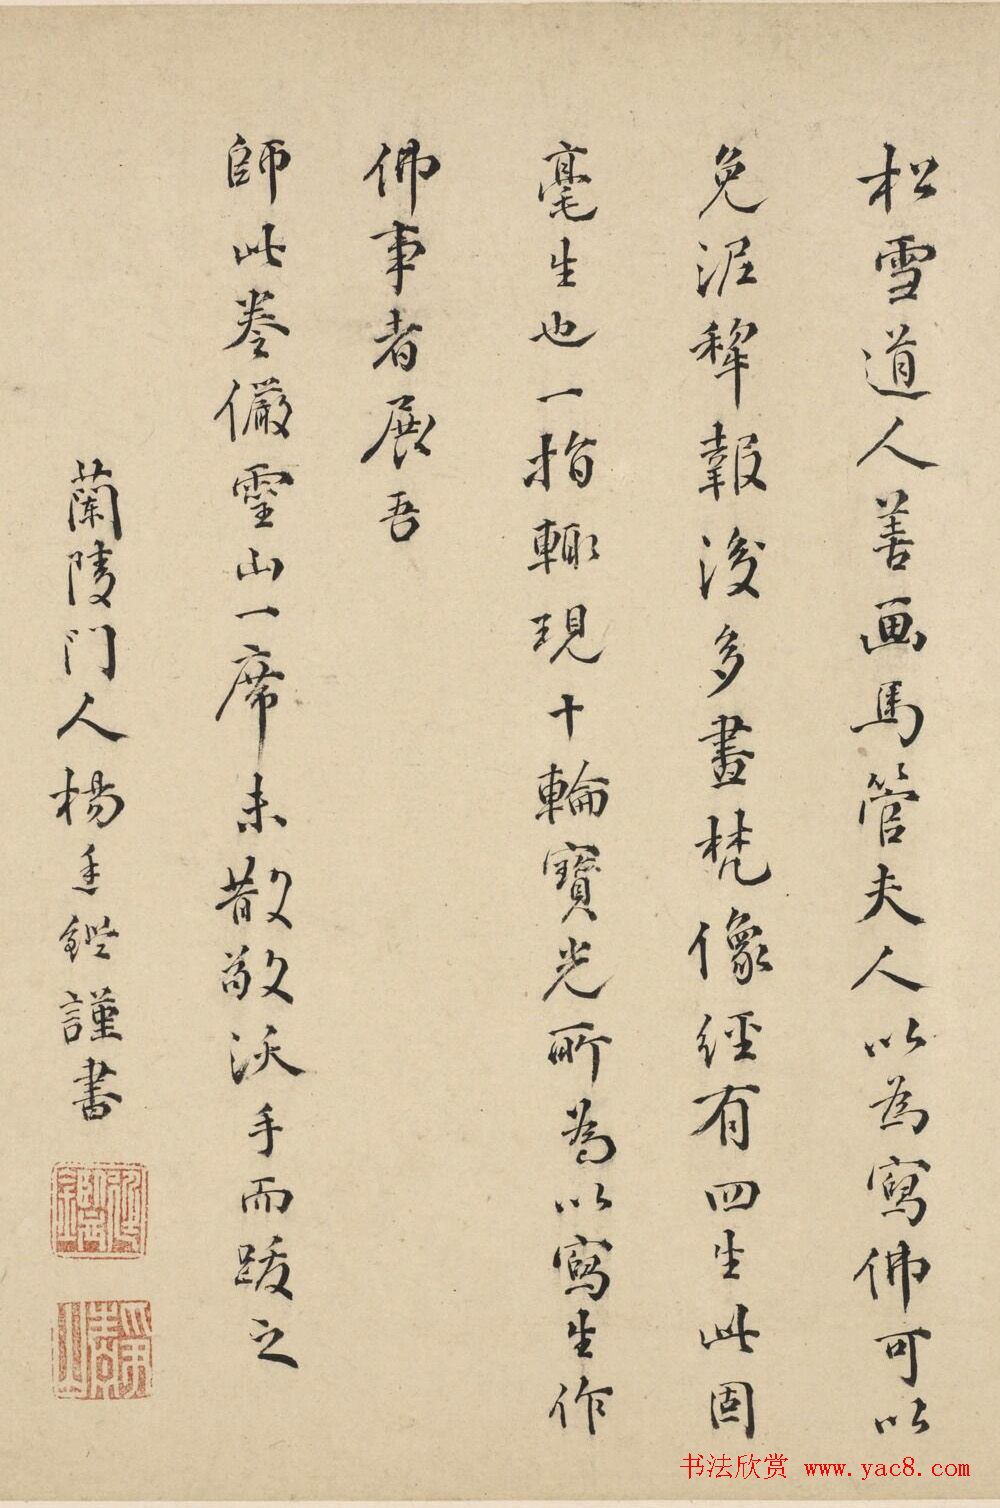 松雪道人善画馬管夫人以為寫佛可以
免泥犂報後多畫梵像經有四生此固
毫生也一指輙現十輪寶光所為以寫生作
佛事者展吾
師此卷儼靈山一席未散敬沃手而跋之
蘭陵門人楊廷鑑謹書
书法欣赏 www.yac8.com